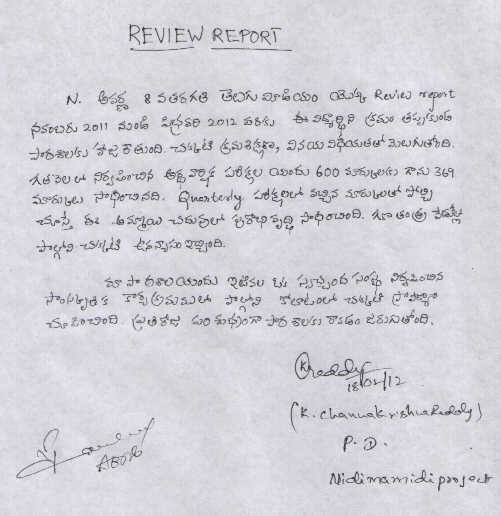 REVIEW REPORT
N. అపర్ణ 8 వ తరగతి తెలుగు మీడియం యొక్క Review report
నవంబరు 2011 నుండి ఫిబ్రవరి 2012 వరకు ఈ విద్యార్థిని క్రమం తప్పకుండ
పాఠశాలకు హాజరౌతుంది. చక్కటి క్రమశిక్షణ, వినయ విధేయతతో మెలుగుతోంది.
గత నెలలో నిర్వహించిన అర్ధ వార్షిక పరీక్షల యందు 600 మార్కులకు గాను 369
మార్కులు సాధించినది. Quarterly పరీక్షలలో వచ్చిన మార్కులతో పోల్చి
చూస్తే ఈ అమ్మాయి చదువులో పురోభివృద్ధి సాధించింది. గణతంత్ర వేడుకల్లో
పాల్గొని చక్కటి ఉపన్యాసం ఇచ్చింది.
మా పాఠశాలయందు ఇటీవల ఒక స్వచ్ఛంద సంస్థ నిర్వహించిన
సాంస్కృతిక కార్యక్రమములో పాల్గొని కోలాటంలో చక్కటి ప్రావీణ్యం
చూపించింది. ప్రతిరోజు పరిశుభ్రంగా పాఠశాలకు రావడం జరుగుతోంది.
KReddy
18/02/12
(K. Chennakrishna Reddy)
P. D.
Nidimamidi project